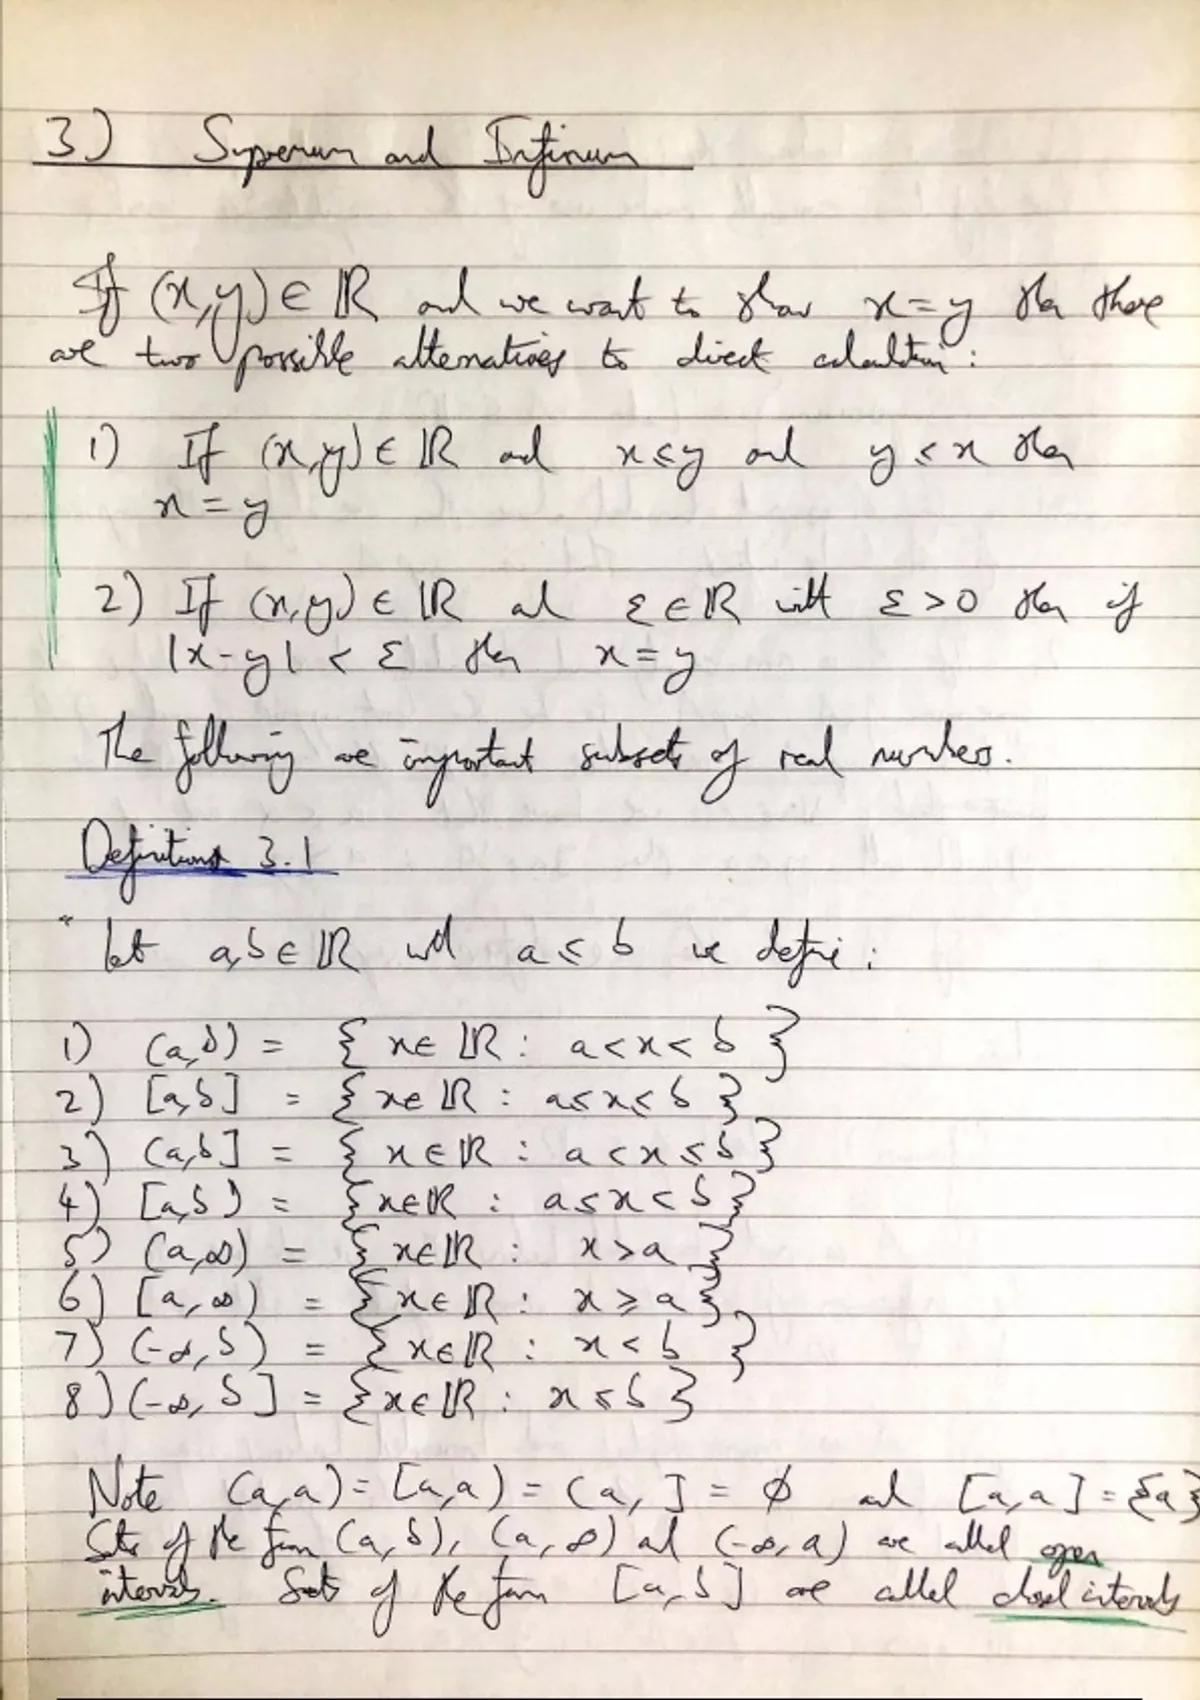 3) Supremum and Infimum
If (x,y) ∈ ℝ and we want to show x = y then there
are two possible alternatives to direct calculation:
1) If (x,y) ∈ ℝ and x ≤ y and y ≤ x then
x = y
2) If (x,y) ∈ ℝ and ε ∈ ℝ with ε > 0 then if
|x-y| < ε then x = y
The following are important subsets of real numbers.
Definitions 3.1
" let a,b ∈ ℝ with a ≤ b we define:
1) (a,b) = { x ∈ ℝ : a < x < b }
2) [a,b] = { x ∈ ℝ : a ≤ x ≤ b }
3) (a,b] = { x ∈ ℝ : a < x ≤ b }
4) [a,b) = { x ∈ ℝ : a ≤ x < b }
5) (a,∞) = { x ∈ ℝ : x > a }
6) [a,∞) = { x ∈ ℝ : x ≥ a }
7) (-∞,b) = { x ∈ ℝ : x < b }
8) (-∞,b] = { x ∈ ℝ : x ≤ b }
Note (a,a) = [a,a) = (a, ] = ∅ and [a,a] = {a}
Sets of the form (a,b), (a,∞) and (-∞,a) are called open
intervals. Sets of the form [a,b] are called closed intervals